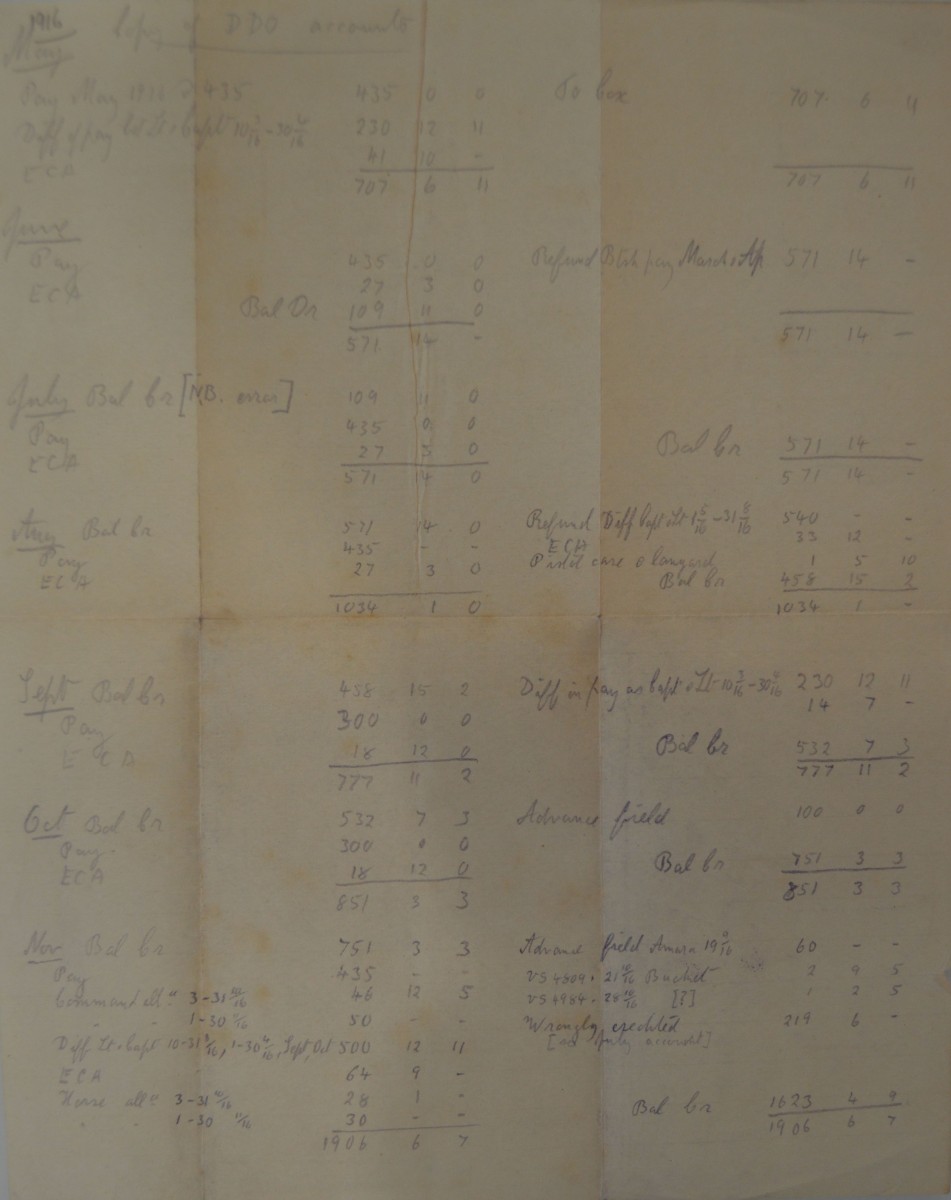 1916 Copy of DDO accounts
May
Pay May 1916 @ 435 435 0 0 To box 707 6 11
Diff of pay Lt & Capt 10 3/16 - 30 4/16 230 12 11
ECA 41 10 -
707 6 11 707 6 11
June
Pay 435 0 0 Refund Btsh pay March & Ap 571 14 -
ECA 27 3 0
Bal Dr 109 11 0
571 14 - 571 14 -
July Bal Cr [NB. error] 109 11 0
Pay 435 0 0 Bal Cr 571 14 -
ECA 27 3 0
571 14 0 571 14 -
Aug Bal Cr 571 14 0 Refund Diff Capt & Lt 1 5/16 - 31 8/16 540 - -
Pay 435 - - ECA 33 12 -
ECA 27 3 0 Pistol case & lanyard 1 5 10
Bal Cr 458 15 2
1034 1 0 1034 1 -
Sept Bal Cr 458 15 2 Diff in pay as Capt & Lt 10 3/16 - 30 4/16 230 12 11
Pay 300 0 0 14 7 -
ECA 18 12 0 Bal Cr 532 7 3
777 11 2 777 11 2
Oct Bal Cr 532 7 3 Advance field 100 0 0
Pay 300 0 0
ECA 18 12 0 Bal Cr 751 3 3
851 3 3 851 3 3
Nov Bal Cr 751 3 3 Advance field Amara 19 9/16 60 - -
Pay 435 - - VS 4809. 21 10/16 2 9 5
Command all. 3-31 10/16 46 12 5 VS 4984. 28 10/16 [?] 1 2 5
" " 1-30 11/16 50 - - Wrongly credited 219 6 -
Diff Lt & Capt 10-31 3/16, 1-30 4/16, Sept, Oct 500 12 11 [as July account]
ECA 64 9 -
Horse all. 3-31 10/16 28 1 - Bal Cr 1623 4 9
" " 1-30 11/16 30 - -
1906 6 7 1906 6 7